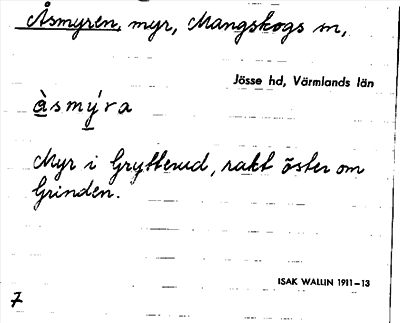 Åsmyren, myr, Mangskogs sn,
Jösse hd, Värmlands län
àsmýra
Myr i Grytterud, rakt öster om
Grinden.
ISAK WALLIN 1911–13
7